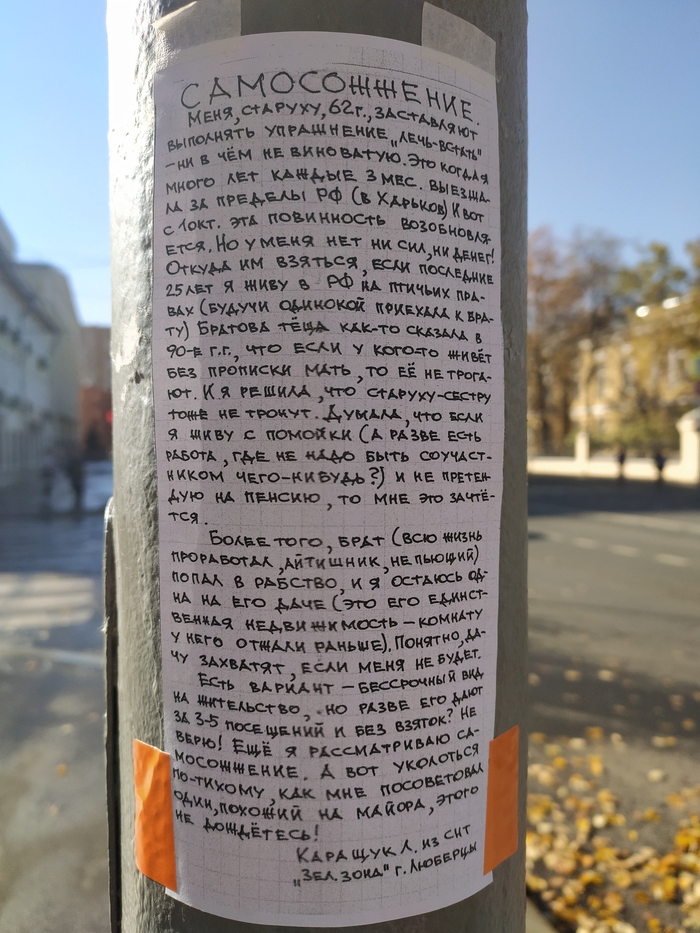 САМОСОЖЖЕНИЕ.
МЕНЯ, СТАРУХУ, 62г., ЗАСТАВЛЯЮТ
ВЫПОЛНЯТЬ УПРАЖНЕНИЕ „ЛЕЧЬ-ВСТАТЬ"
– НИ В ЧЁМ НЕ ВИНОВАТУЮ. ЭТО КОГДА Я
МНОГО ЛЕТ КАЖДЫЕ 3 МЕС. ВЫЕЗЖА-
ЛА ЗА ПРЕДЕЛЫ РФ (В ХАРЬКОВ) И ВОТ
С 1 ОКТ. ЭТА ПОВИННОСТЬ ВОЗОБНОВЛЯ-
ЕТСЯ. НО У МЕНЯ НЕТ НИ СИЛ, НИ ДЕНЕГ!
ОТКУДА ИМ ВЗЯТЬСЯ, ЕСЛИ ПОСЛЕДНИЕ
25 ЛЕТ Я ЖИВУ В РФ НА ПТИЧЬИХ ПРА-
ВАХ (БУДУЧИ ОДИНОКОЙ ПРИЕХАЛА К БРА-
ТУ) БРАТОВА ТЁЩА КАК-ТО СКАЗАЛА В
90-Е Г.Г., ЧТО ЕСЛИ У КОГО-ТО ЖИВЁТ
БЕЗ ПРОПИСКИ МАТЬ, ТО ЕЁ НЕ ТРОГА-
ЮТ. И Я РЕШИЛА, ЧТО СТАРУХУ-СЕСТРУ
ТОЖЕ НЕ ТРОНУТ. ДУМАЛА, ЧТО ЕСЛИ
Я ЖИВУ С ПОМОЙКИ (А РАЗВЕ ЕСТЬ
РАБОТА, ГДЕ НЕ НАДО БЫТЬ СОУЧАСТ-
НИКОМ ЧЕГО-НИБУДЬ?) И НЕ ПРЕТЕН-
ДУЮ НА ПЕНСИЮ, ТО МНЕ ЭТО ЗАЧТЁ-
ТСЯ.
БОЛЕЕ ТОГО, БРАТ (ВСЮ ЖИЗНЬ
ПРОРАБОТАЛ, АЙТИШНИК, НЕ ПЬЮЩИЙ)
ПОПАЛ В РАБСТВО, И Я ОСТАЮСЬ ОД-
НА НА ЕГО ДАЧЕ (ЭТО ЕГО ЕДИНСТ-
ВЕННАЯ НЕДВИЖИМОСТЬ – КОМНАТУ
У НЕГО ОТЖАЛИ РАНЬШЕ). ПОНЯТНО, ДА-
ЧУ ЗАХВАТЯТ, ЕСЛИ МЕНЯ НЕ БУДЕТ.
ЕСТЬ ВАРИАНТ – БЕССРОЧНЫЙ ВИД
НА ЖИТЕЛЬСТВО, НО РАЗВЕ ЕГО ДАЮТ
ЗА 3-5 ПОСЕЩЕНИЙ И БЕЗ ВЗЯТОК? НЕ
ВЕРЮ! ЕЩЁ Я РАССМАТРИВАЮ СА-
МОСОЖЖЕНИЕ. А ВОТ УКОЛОТЬСЯ
ПО-ТИХОМУ, КАК МНЕ ПОСОВЕТОВАЛ
ОДИН, ПОХОЖИЙ НА МАЙОРА, ЭТОГО
НЕ ДОЖДЁТЕСЬ!
КАРАЩУК Л. ИЗ СНТ
„ЗЕЛ. ЗОНА" Г. ЛЮБЕРЦЫ